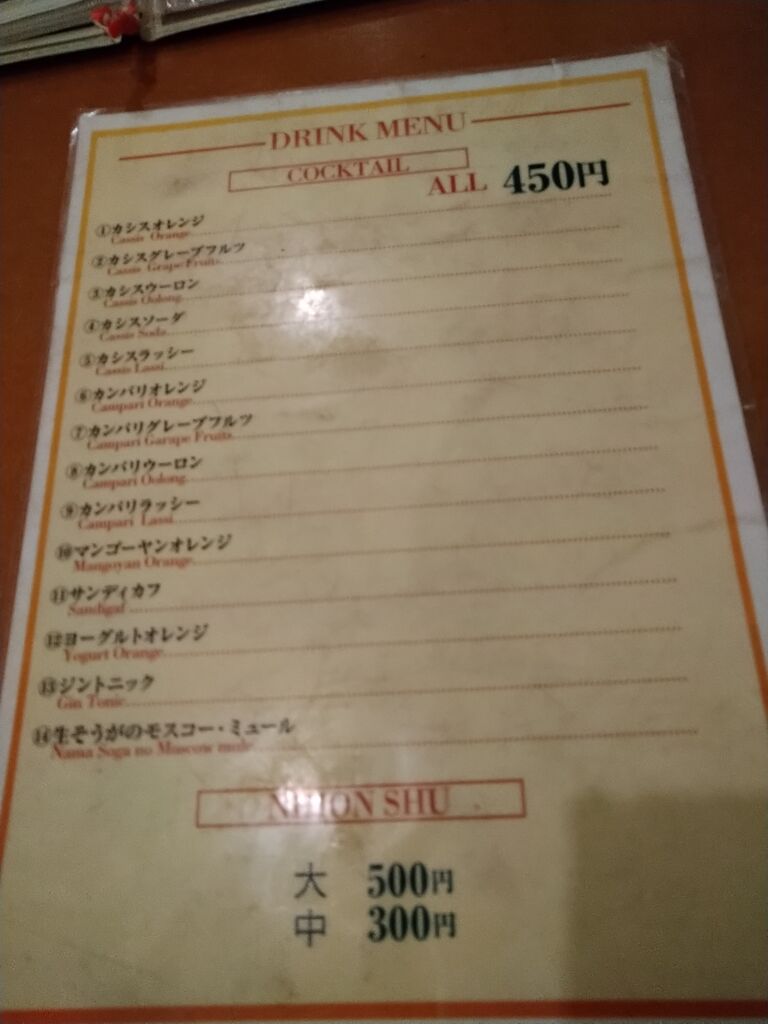 DRINK MENU
COCKTAIL
ALL 450円
①カシスオレンジ
Cassis Orange
②カシスグレープフルツ
Cassis Grape Fruits
③カシスウーロン
Cassis Oolong
④カシスソーダ
Cassis Soda
⑤カシスラッシー
Cassis Lassi
⑥カンバリオレンジ
Campari Orange
⑦カンバリグレープフルツ
Campari Garape Fruits
⑧カンバリウーロン
Campari Oolong
⑨カンバリラッシー
Campari Lassi
⑩マンゴーヤンオレンジ
Mangoyan Orange
⑪サンディカフ
Sandigaf
⑫ヨーグルトオレンジ
Yogurt Orange
⑬ジントニック
Gin Tonic
⑭生そうがのモスコー・ミュール
Nama Soga no Moscow mule
NIHON SHU
大 500円
中 300円